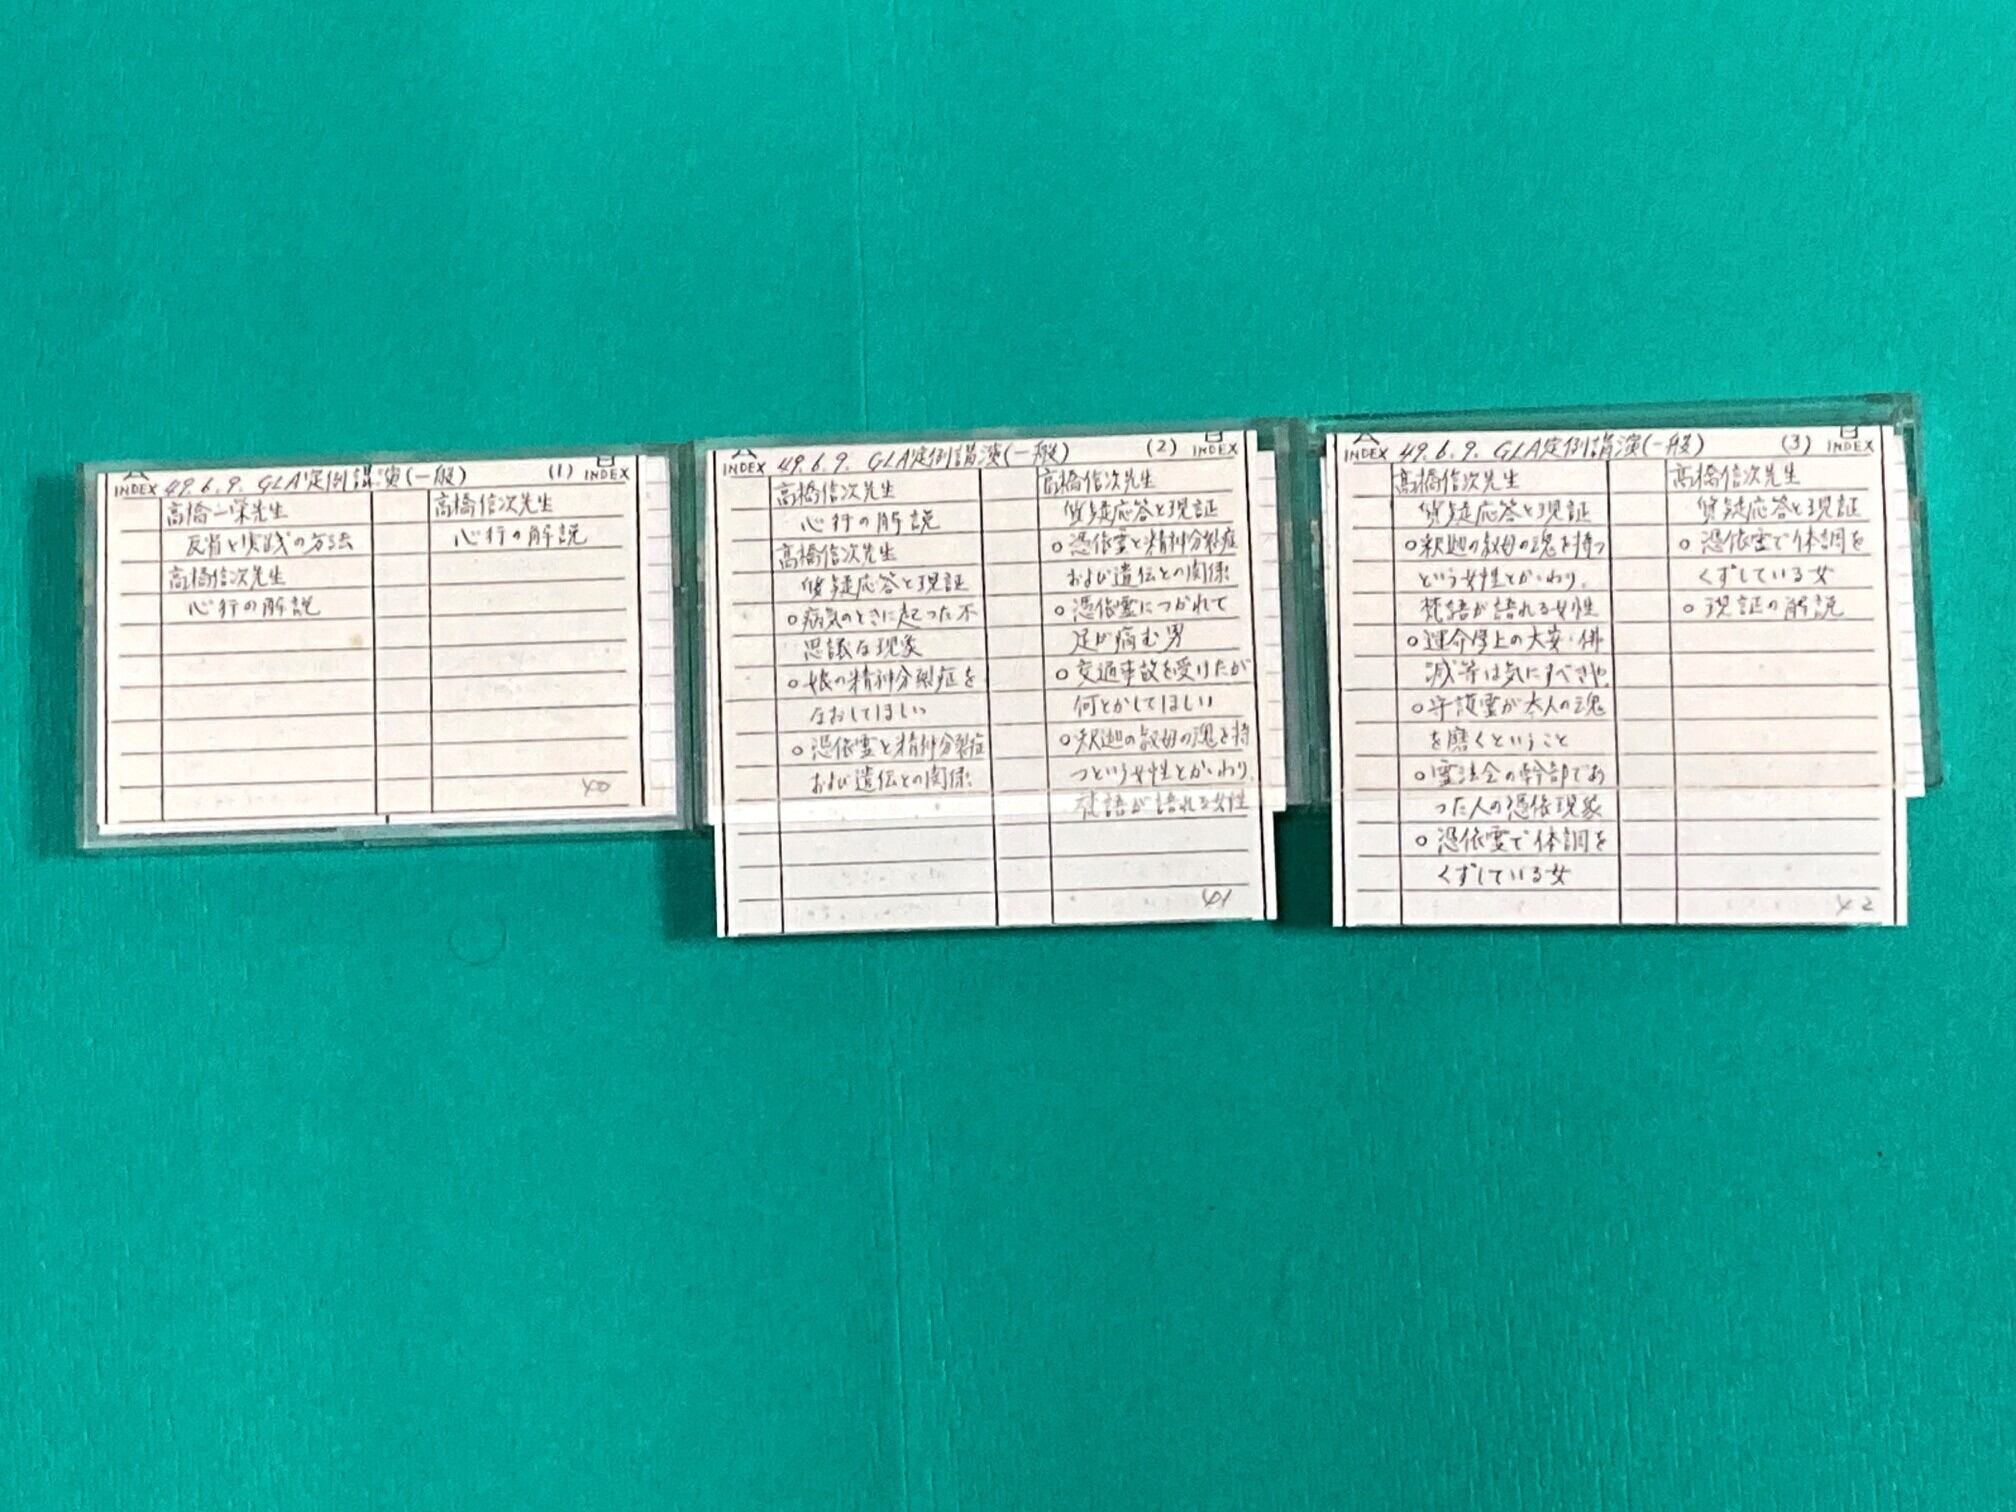 A
INDEX 49.6.9. GLA定例講演(一般) (1) B INDEX
高橋一栄先生
反省と実践の方法
高橋信次先生
心行の解説
高橋信次先生
心行の解説
40
A
INDEX 49.6.9. GLA定例講演(一般) (2) B INDEX
高橋信次先生
心行の解説
高橋信次先生
質疑応答と現証
○病気のときに起った不
思議な現象
○娘の精神分裂症を
なおしてほしい
○憑依霊と精神分裂症
および遺伝との関係
高橋信次先生
質疑応答と現証
○憑依霊と精神分裂症
および遺伝との関係
○憑依霊につかれて
足が痛む男
○交通事故を受けたが
何とかしてほしい
○釈迦の叔母の魂を持
つという女性とかゝわり、
梵語が語れる女性
41
A
INDEX 49.6.9. GLA定例講演(一般) (3) B INDEX
高橋信次先生
質疑応答と現証
○釈迦の叔母の魂を持つ
という女性とかゝわり、
梵語が語れる女性
○運命学上の大安・佛
滅等は気にすべきや
○守護霊が本人の魂
を磨くということ
○霊法会の幹部であ
った人の憑依現象
○憑依霊で体調を
くずしている女
高橋信次先生
質疑応答と現証
○憑依霊で体調を
くずしている女
○現証の解説
42